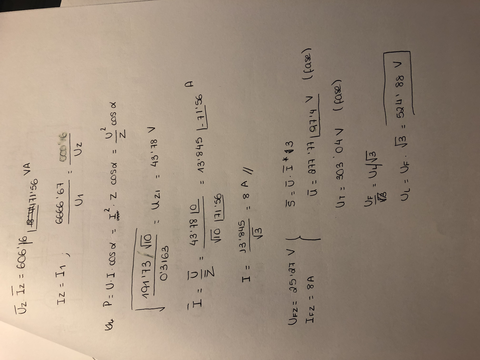 U̅₂ I̅₂ = 606'16 |71'56 VA
I₂ = I₁ , 6666'67 / U₁ = 606'16 / U₂
P = U·I cos α = I²· Z cos α = U²/Z cos α
√(191'73/√10 / 0'3163) = U₂₁ = 43'78 V
I̅ = U̅/Z̅ = 43'78 |0 / √10 |71'56 = 13'845 |-71'56 A
I = 13'845/√3 = 8 A //
U_F2 = 25'27 V
I_F2 = 8A
S̅ = U̅ · I̅* · 3
U̅ = 277'77 |97'4 V (fase)
U₁ = 303'04 V (fase)
U_F = U_L/√3
U_L = U_F √3 = 524'88 V